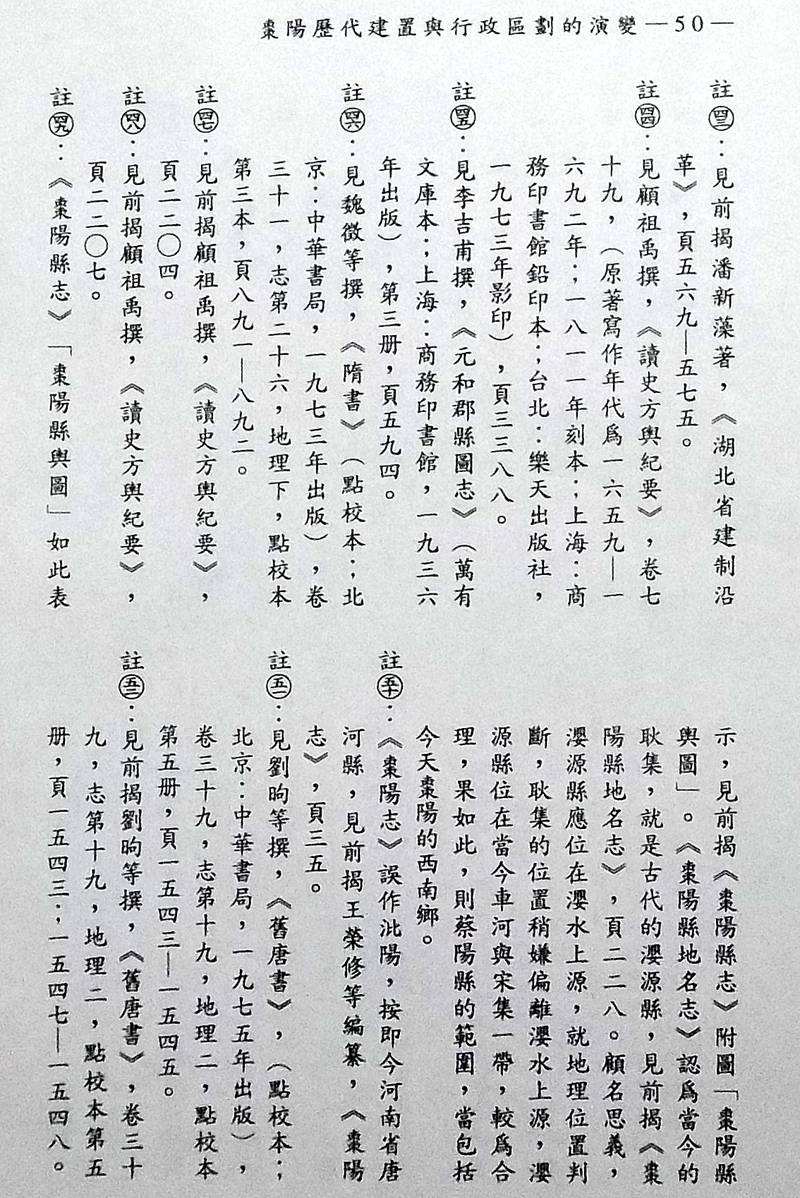 棗陽歷代建置與行政區劃的演變—50—
註㊸：見前揭潘新藻著，《湖北省建制沿
革》，頁五六九—五七五。
註㊹：見顧祖禹撰，《讀史方輿紀要》，卷七
十九，（原著寫作年代爲一六五九—一
六九二年；一八一一年刻本；上海：商
務印書館鉛印本；台北：樂天出版社，
一九七三年影印），頁三三八八。
註㊺：見李吉甫撰，《元和郡縣圖志》（萬有
文庫本；上海：商務印書館，一九三六
年出版），第三册，頁五九四。
註㊻：見魏徵等撰，《隋書》（點校本；北
京：中華書局，一九七三年出版），卷
三十一，志第二十六，地理下，點校本
第三本，頁八九一—八九二。
註㊼：見前揭顧祖禹撰，《讀史方輿紀要》，
頁二二〇四。
註㊽：見前揭顧祖禹撰，《讀史方輿紀要》，
頁二二〇七。
註㊾：《棗陽縣志》「棗陽縣輿圖」如此表
示，見前揭《棗陽縣志》附圖「棗陽縣
輿圖」。《棗陽縣地名志》認爲當今的
耿集，就是古代的瀴源縣，見前揭《棗
陽縣地名志》，頁二二八。顧名思義，
瀴源縣應位在瀴水上源，就地理位置判
斷，耿集的位置稍嫌偏離瀴水上源，瀴
源縣位在當今車河與宋集一帶，較爲合
理，果如此，則蔡陽縣的範圍，當包括
今天棗陽的西南鄉。
註㊿：《棗陽志》誤作沘陽，按即今河南省唐
河縣，見前揭王榮修等編纂，《棗陽
志》，頁三五。
註五一：見劉昫等撰，《舊唐書》，（點校本；
北京：中華書局，一九七五年出版），
卷三十九，志第十九，地理二，點校本
第五册，頁一五四三—一五四五。
註五二：見前揭劉昫等撰，《舊唐書》，卷三十
九，志第十九，地理二，點校本第五
册，頁一五四三；一五四七—一五四八。